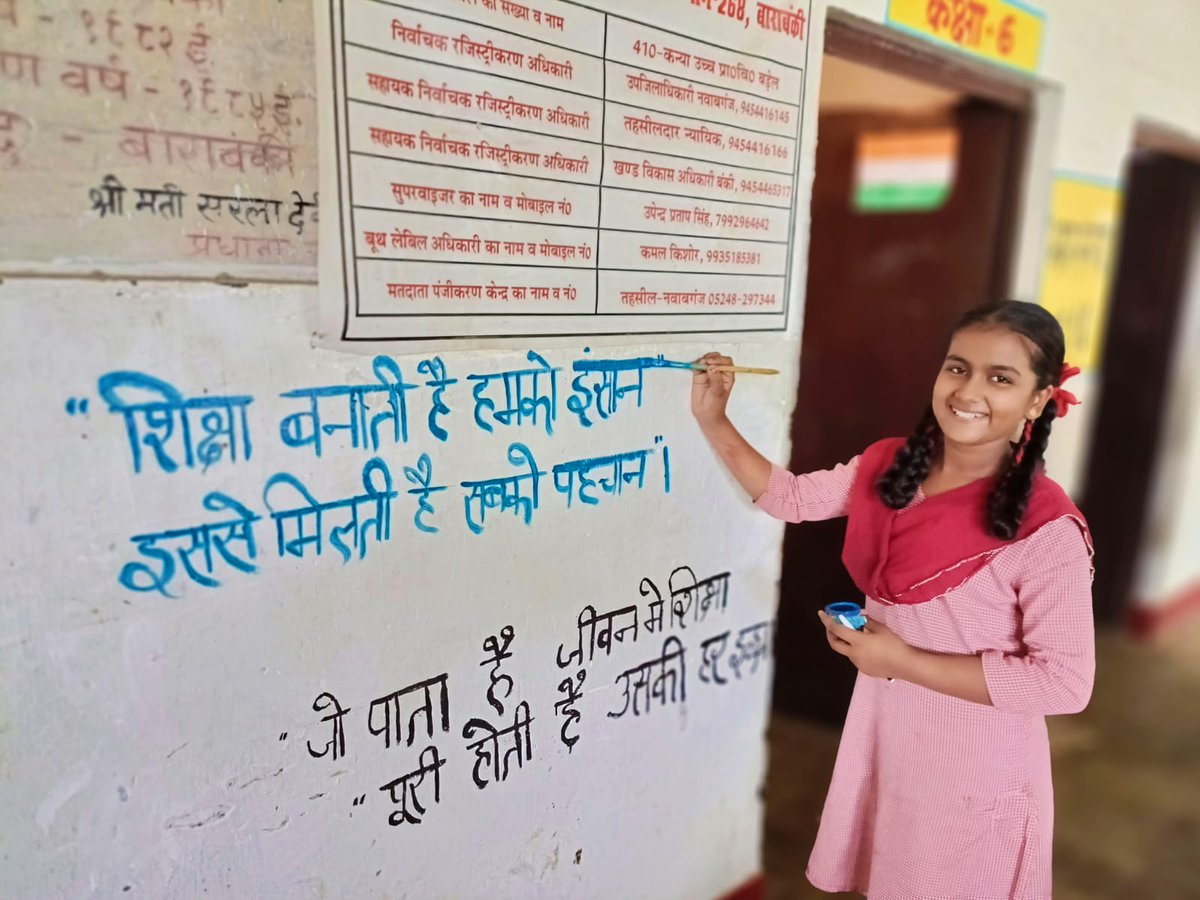 - १९८२ ई०
वर्ष - १९८५ ई.
- बाराबंकी
श्री मती सरला
268, बाराबंकी
की संख्या व नाम
410-कन्या उच्च प्रा०वि० बड़ेल
निर्वाचक रजिस्ट्रीकरण अधिकारी
उपजिलाधिकारी नवाबगंज, 9454416145
सहायक निर्वाचक रजिस्ट्रीकरण अधिकारी
तहसीलदार न्यायिक, 9454416166
सहायक निर्वाचक रजिस्ट्रीकरण अधिकारी
खण्ड विकास अधिकारी बंकी, 9454465317
सुपरवाइजर का नाम व मोबाइल नं०
उपेन्द्र प्रताप सिंह, 7992964642
बूथ लेबिल अधिकारी का नाम व मोबाइल नं०
कमल किशोर, 9935185381
मतदाता पंजीकरण केन्द्र का नाम व नं०
तहसील-नवाबगंज 05248-297344
कक्षा-6
"शिक्षा बनाती है हमको इंसान"
इससे मिलती है सबको पहचान"।
"जो पाता है जीवन मे शिक्षा
"पूरी होती है उसकी हर इच्छा